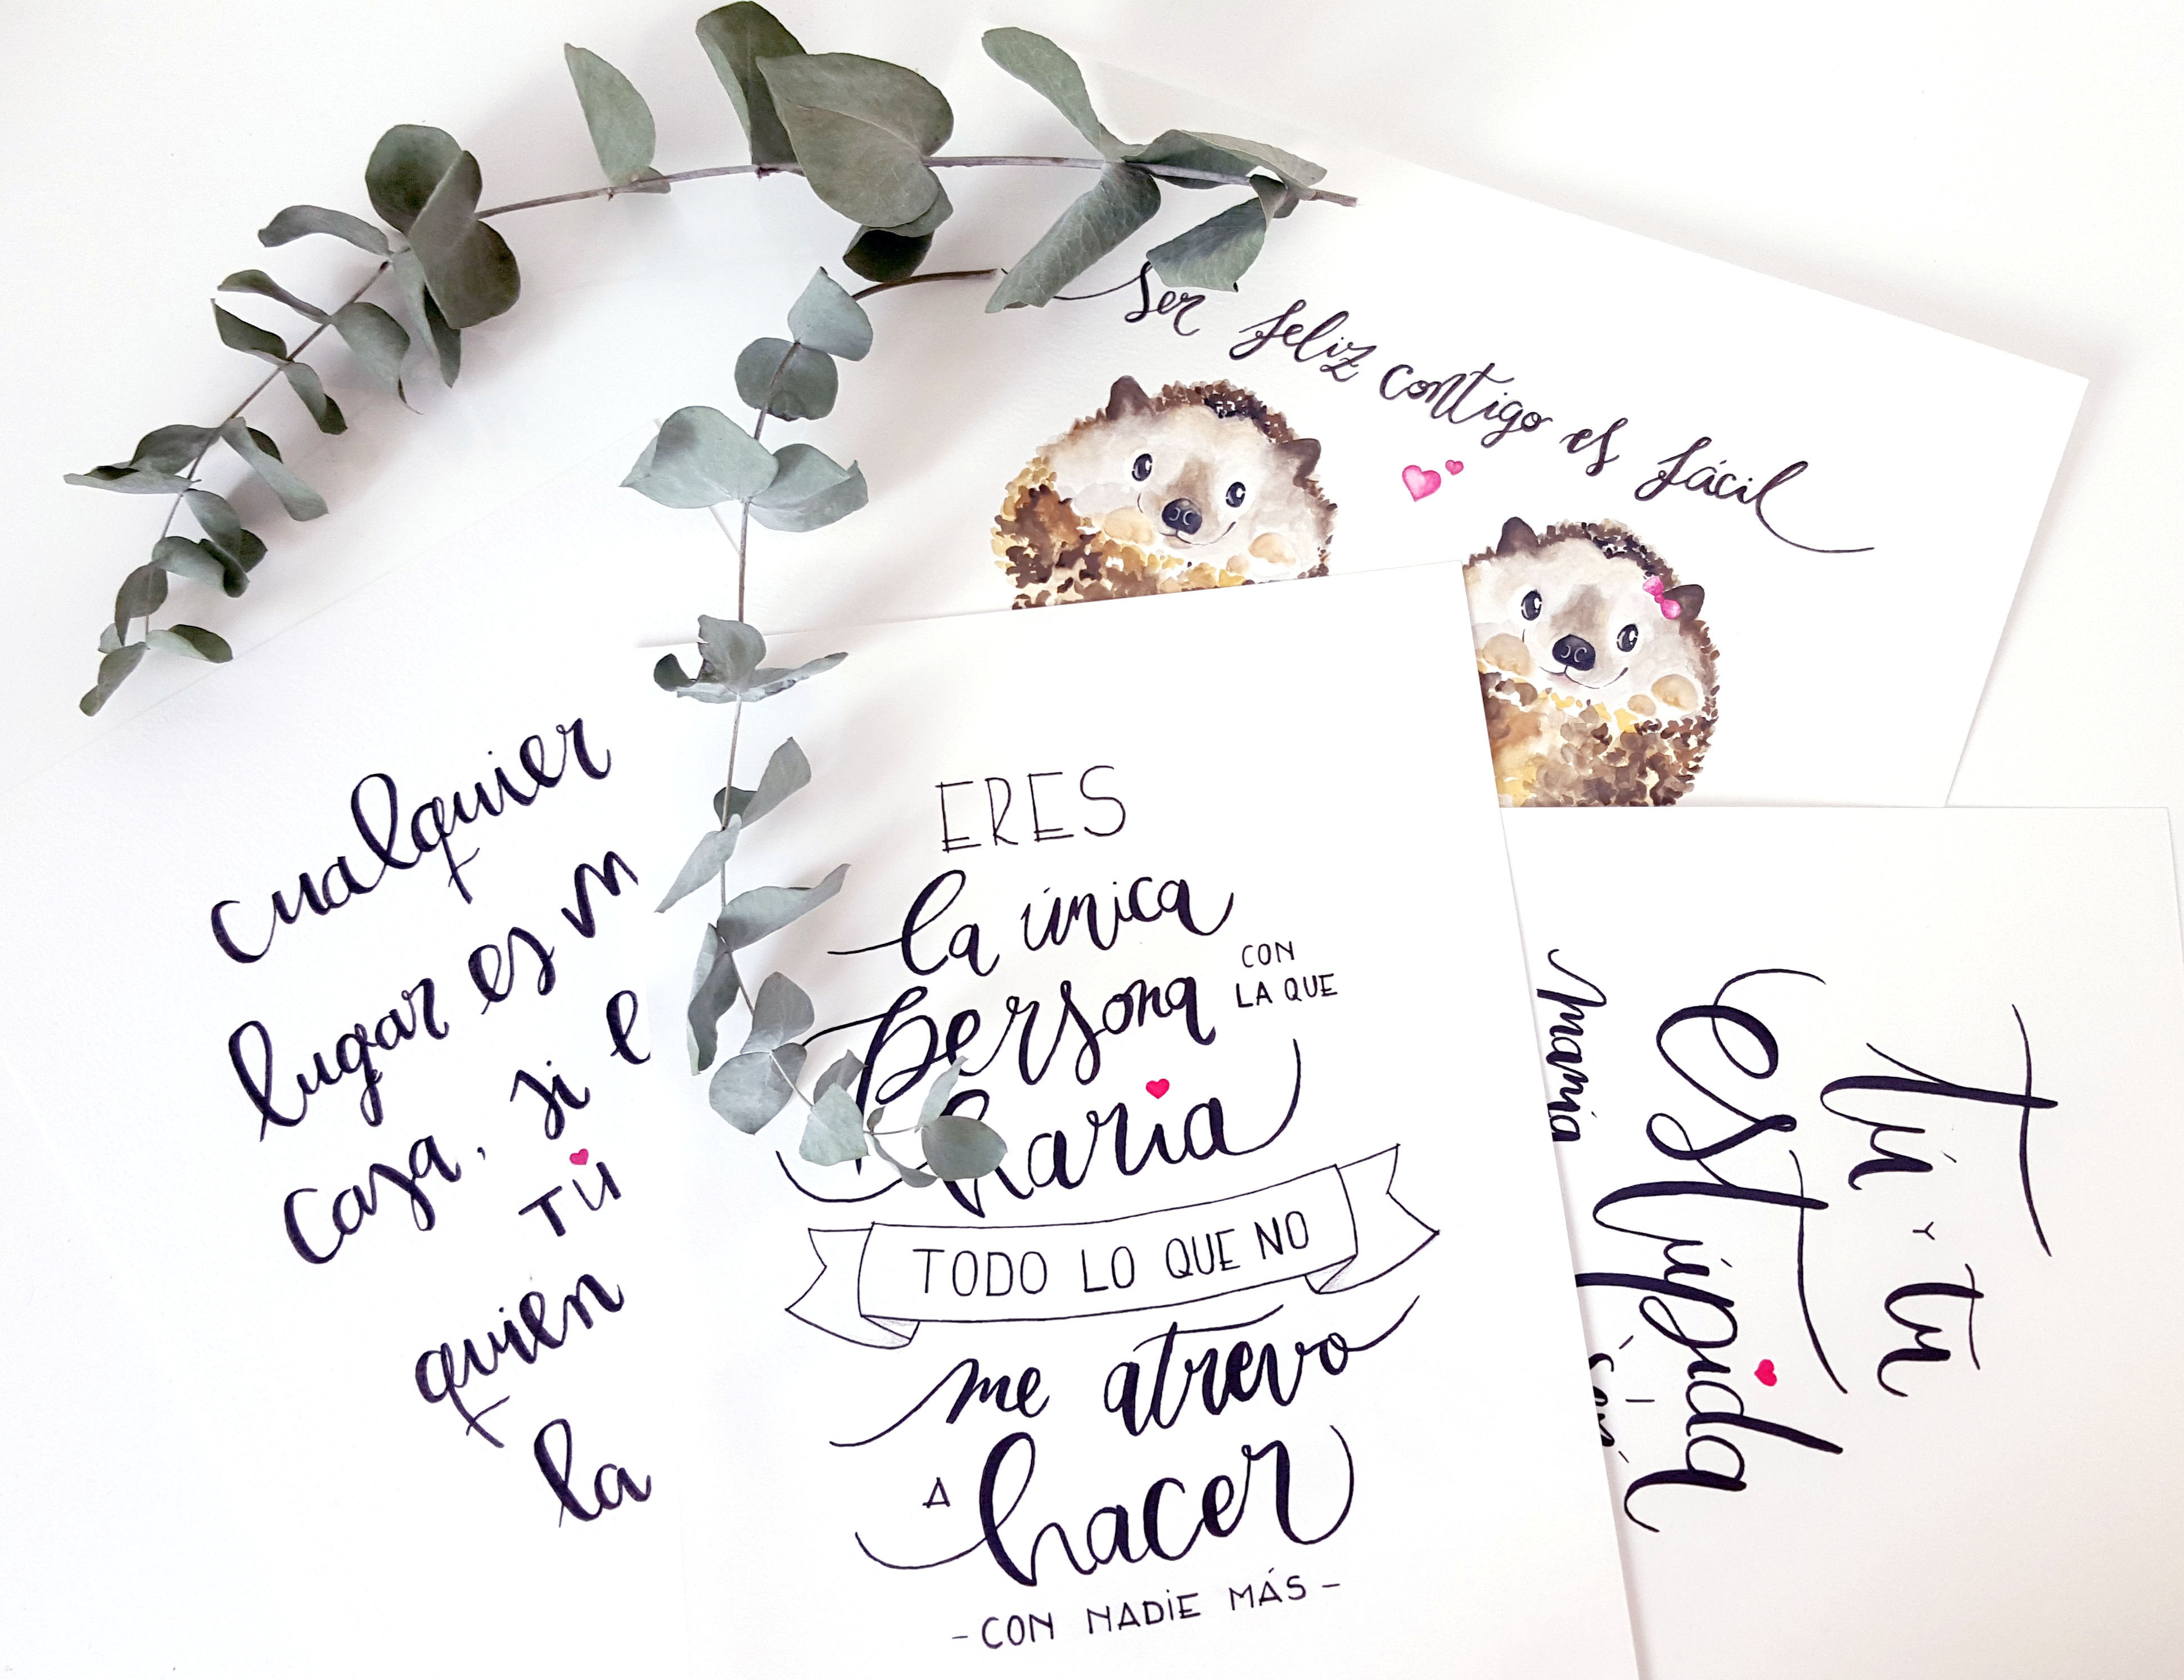 ser feliz contigo es fácil
cualquier
lugar es
casa, si
TÚ
quien
la
ERES
la única
persona CON
LA QUE
haria
TODO LO QUE NO
me atrevo
A hacer
- CON NADIE MÁS -
Tú Y tu
estúpida
manía